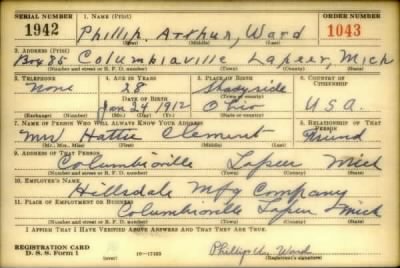 SERIAL NUMBER 1. NAME (Print) ORDER NUMBER
1942 Phillip. Arthur, Ward 1043
(First) (Middle) (Last)
2. ADDRESS (Print)
Box 85 Columbiaville Lapeer, Mich
(Number and street or R. F. D. number) (Town) (County) (State)
3. TELEPHONE 4. AGE IN YEARS 5. PLACE OF BIRTH 6. COUNTRY OF CITIZENSHIP
None 28 Shadyside
DATE OF BIRTH (Town or county)
Jan 24 1912 Ohio U.S.A.
(Exchange) (Number) (Mo.) (Day) (Yr.) (State or country)
7. NAME OF PERSON WHO WILL ALWAYS KNOW YOUR ADDRESS 8. RELATIONSHIP OF THAT PERSON
Mrs Hattie Clement Friend
(Mr., Mrs., Miss) (First) (Middle) (Last)
9. ADDRESS OF THAT PERSON
Columbiaville Lapeer Mich
(Number and street or R. F. D. number) (Town) (County) (State)
10. EMPLOYER'S NAME
Hillsdale Mfg Company
11. PLACE OF EMPLOYMENT OR BUSINESS
Columbiaville Lapeer Mich
(Number and street or R. F. D. number) (Town) (County) (State)
I AFFIRM THAT I HAVE VERIFIED ABOVE ANSWERS AND THAT THEY ARE TRUE.
REGISTRATION CARD
D. S. S. Form 1 (over) Phillip Ward
(Registrant's signature)